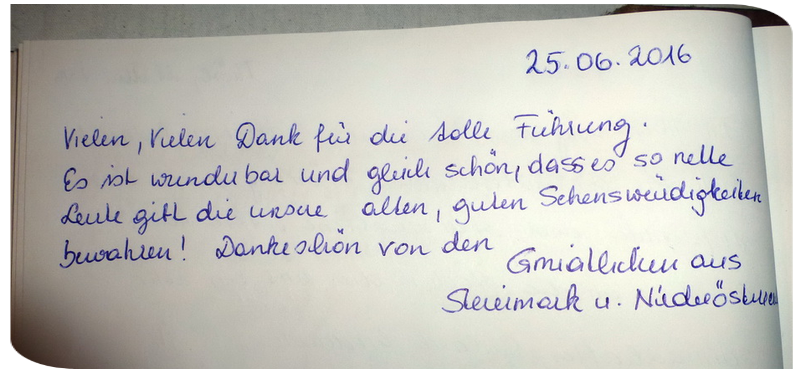 25.06.2016
Vielen, Vielen Dank für die tolle Führung.
Es ist wunderbar und gleich schön, dass es so nette
Leute gibt die unsere alten, guten Sehenswürdigkeiten
bewahren! Dankeschön von den
aus
Steiermark u. Niederösterr